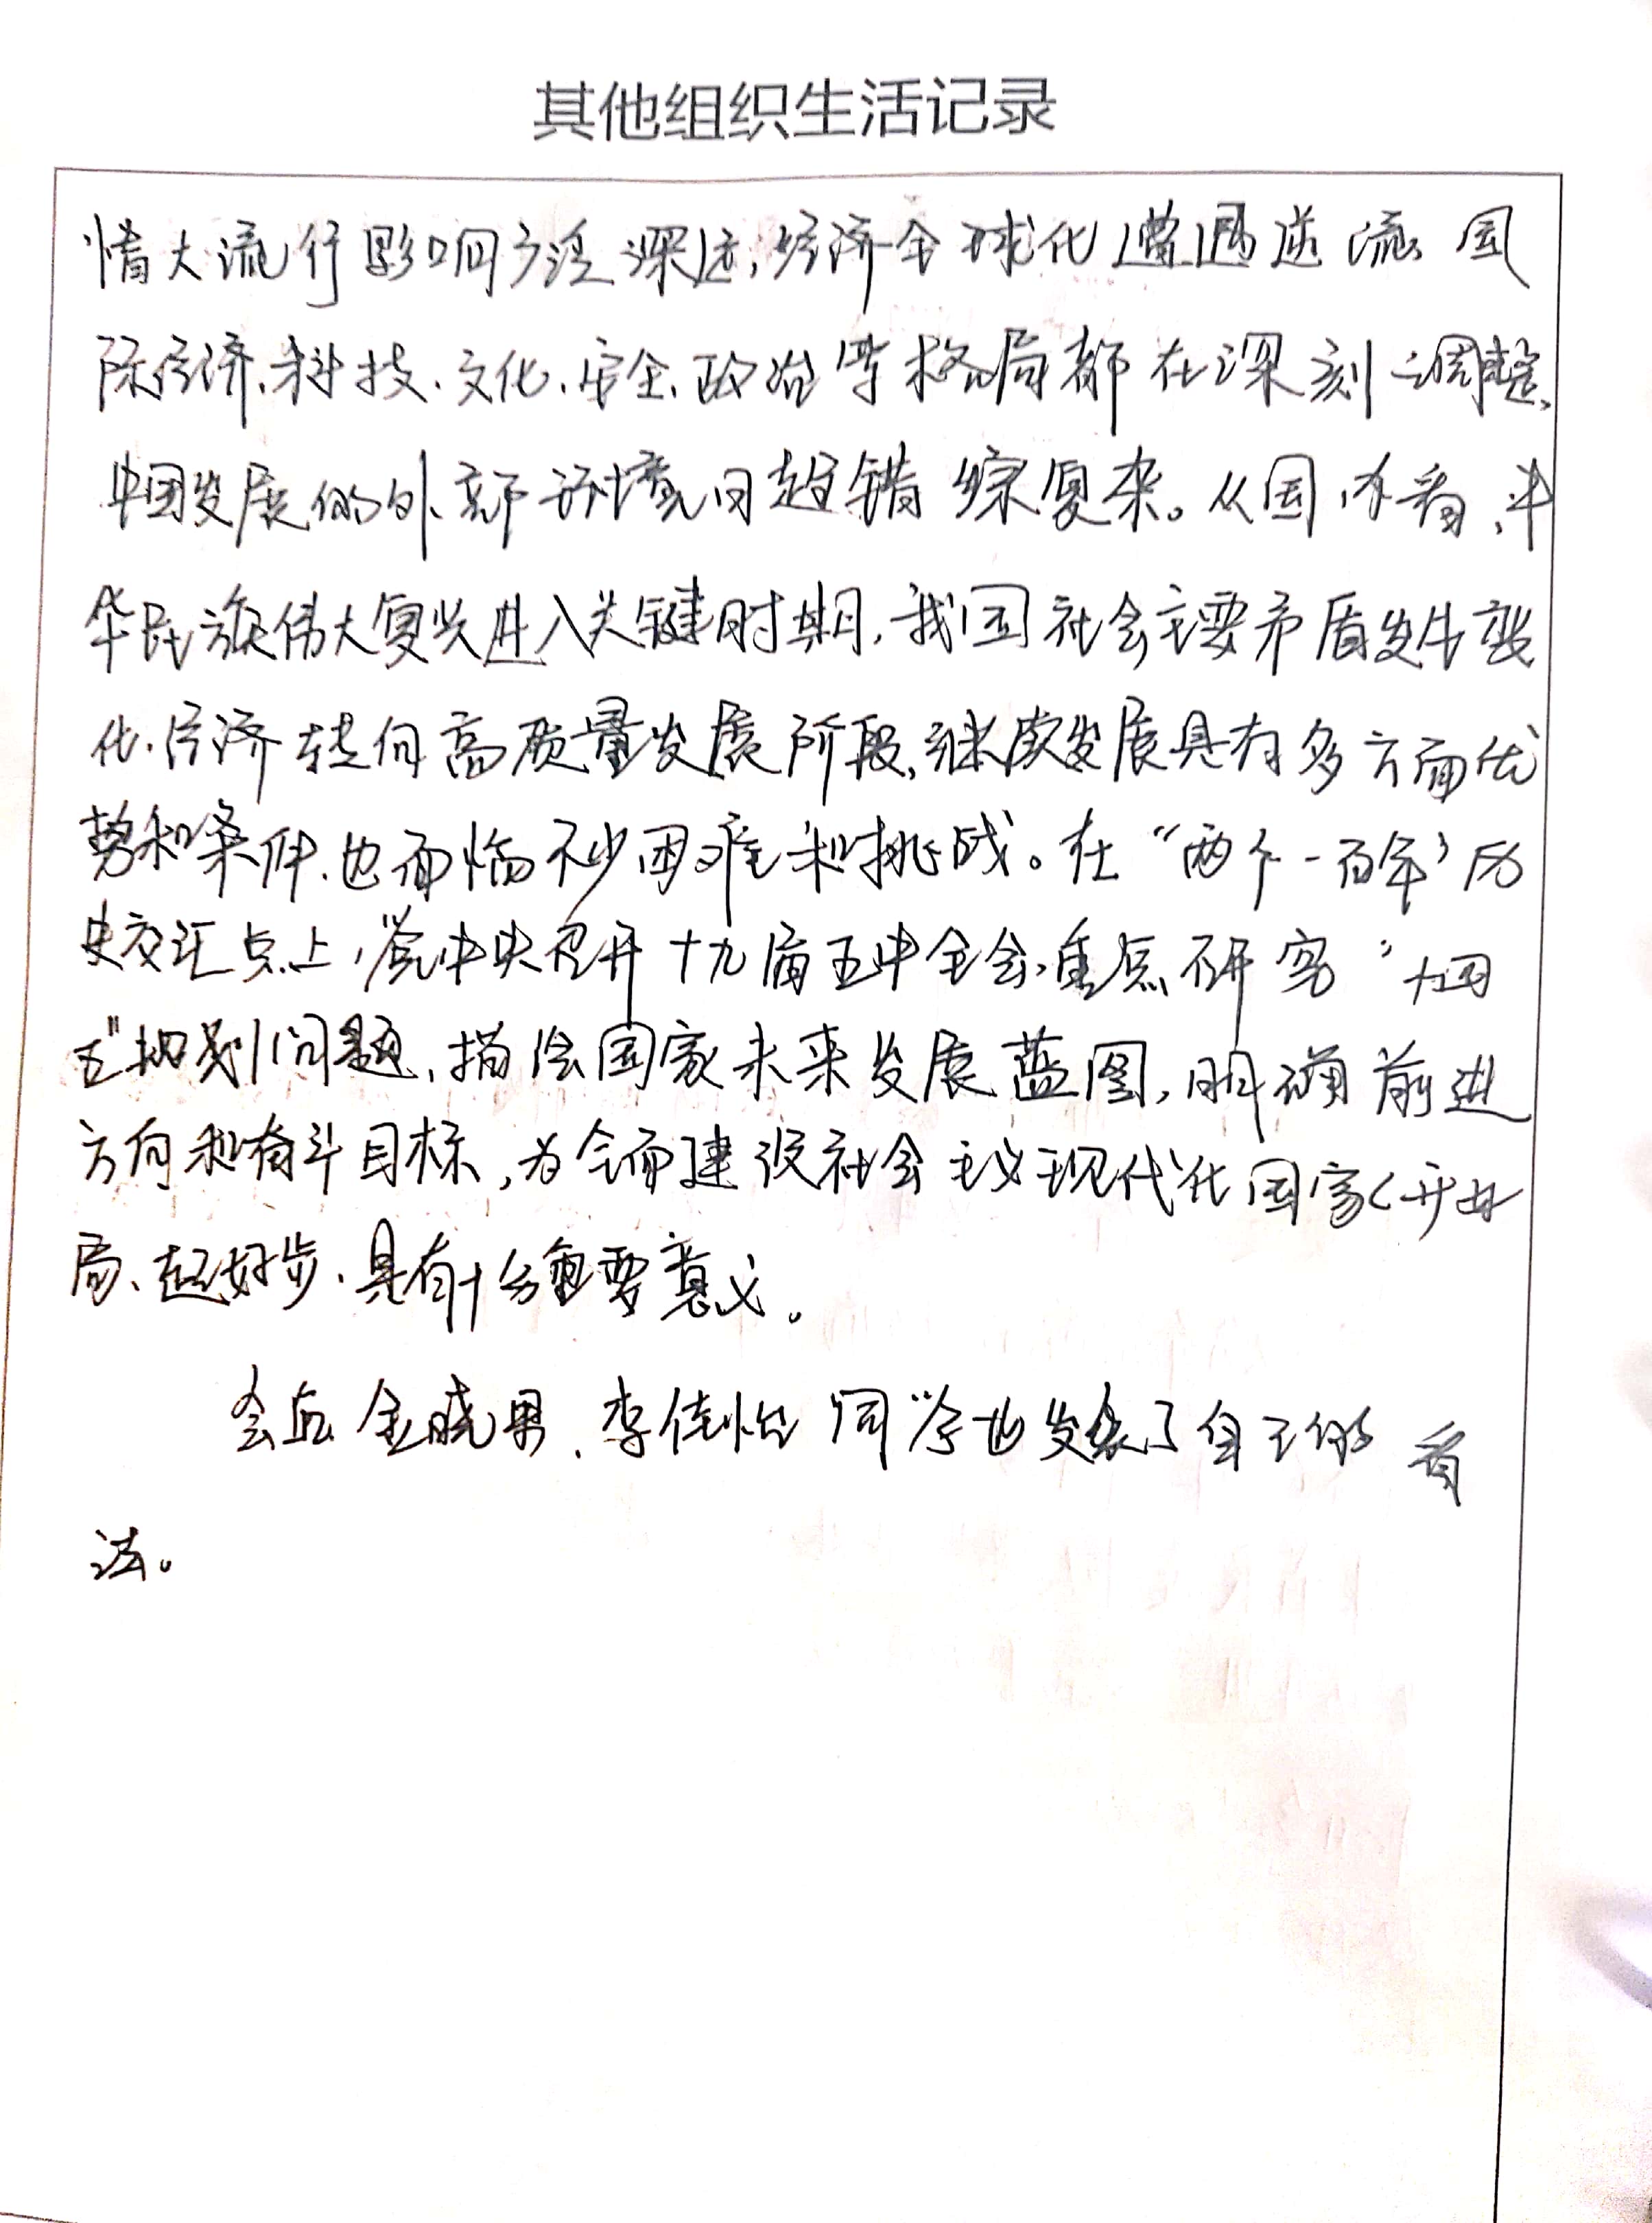 其他组织生活记录
情大流行影响广泛深远,经济全球化遭遇逆流,国
际经济、科技、文化、安全、政治等格局都在深刻调整,
中国发展的外部环境日趋错综复杂。从国内看,中
华民族伟大复兴进入关键时期,我国社会主要矛盾发生变
化,经济转向高质量发展阶段,继续发展具有多方面优
势和条件,也面临不少困难和挑战。在“两个一百年”历
史交汇点上,党中央召开十九届五中全会,重点研究“十四
五”规划问题,描绘国家未来发展蓝图,明确前进
方向和奋斗目标,为全面建设社会主义现代化国家开好
局、起好步,具有十分重要意义。
会后金晓果、李佳怡同学也发表了自己的看
法。